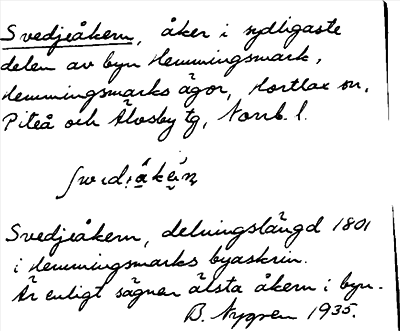 Svedjeåkern, åker i sydligaste
delen av byn Hemmingsmark,
Hemmingsmarks ägor, Hortlax sn,
Piteå och Älvsby tg, Norrb. l.
Svedjeåkern, delningslängd 1801
i Hemmingsmarks byaskrin.
Är enligt sägnen älsta åkern i byn.
B. Nygren 1935.